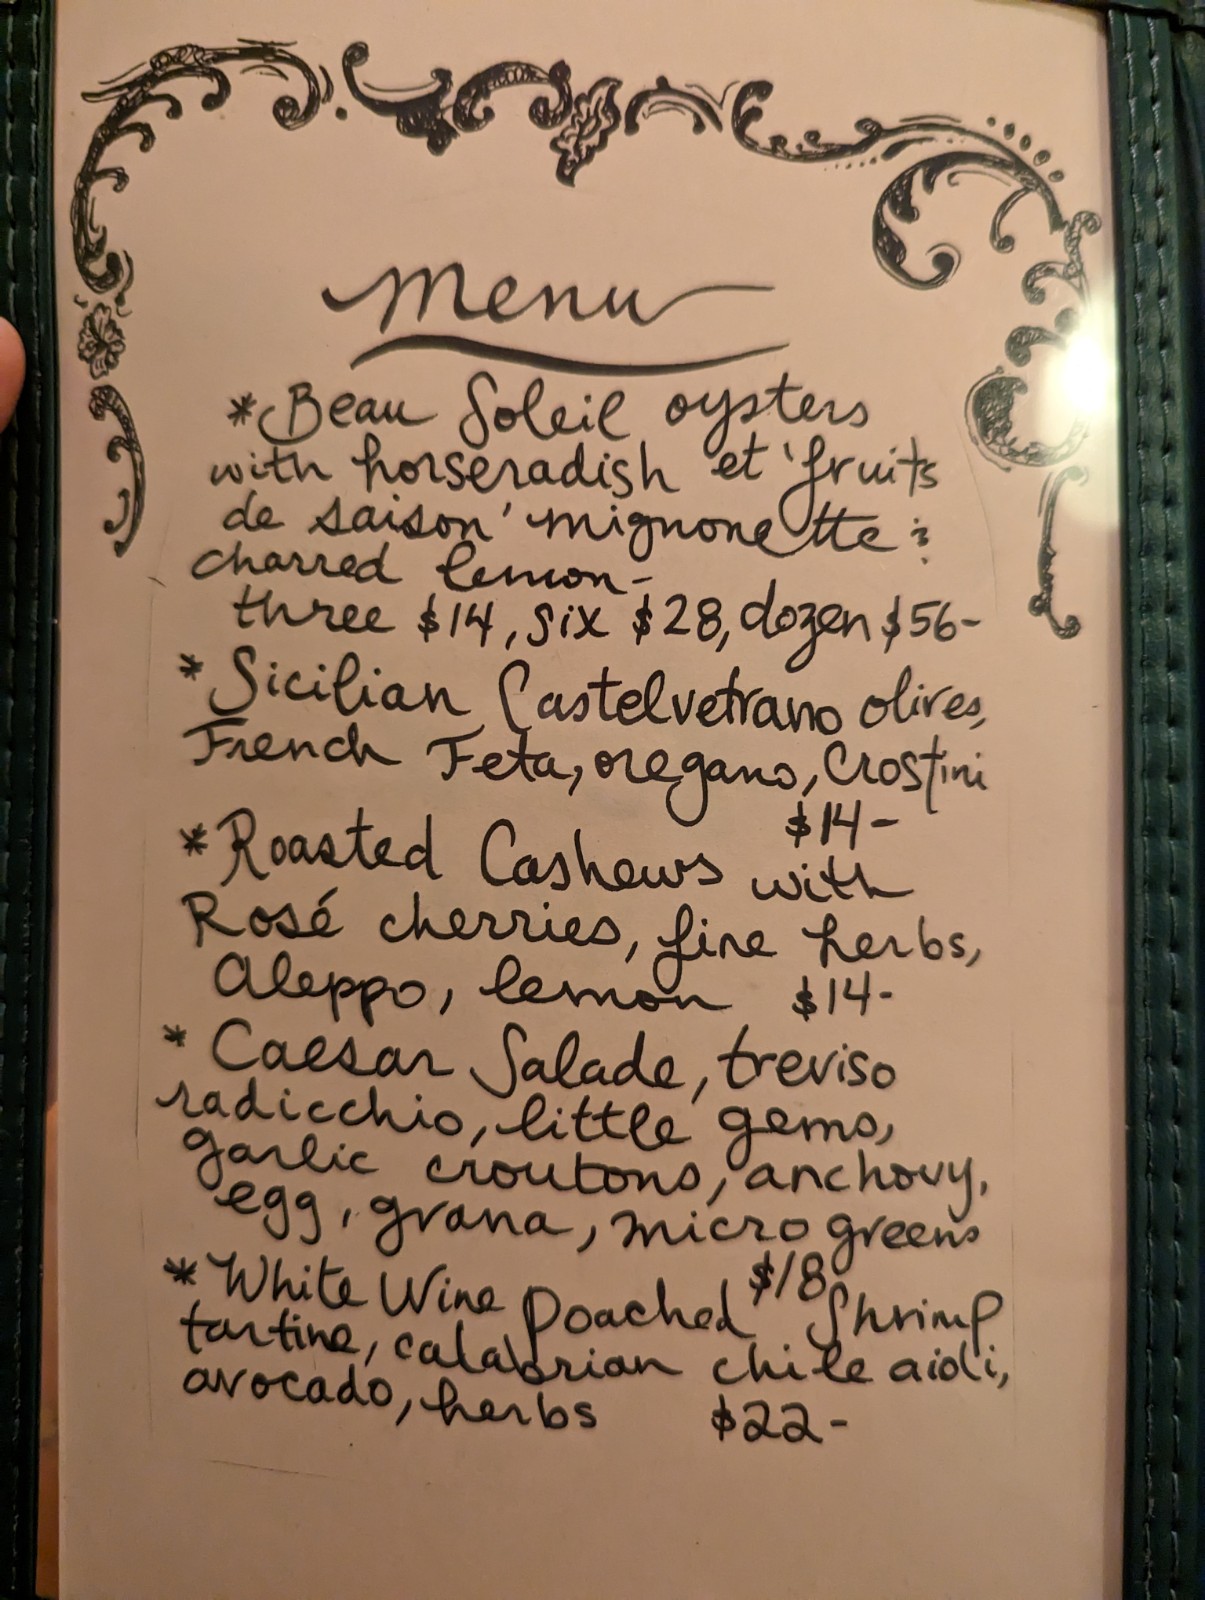 Menu
*Beau Soleil oysters
with horseradish et 'fruits
de saison' mignonette &
charred lemon-
three $14, six $28, dozen $56-
*Sicilian Castelvetrano olives,
French Feta, oregano, Crostini
$14-
*Roasted Cashews with
Rosé cherries, fine herbs,
Aleppo, lemon $14-
*Caesar Salade, treviso
radicchio, little gems,
garlic croutons, anchovy,
egg, grana, micro greens
$18
*White Wine Poached Shrimp
tartine, calabrian chile aioli,
avocado, herbs $22-